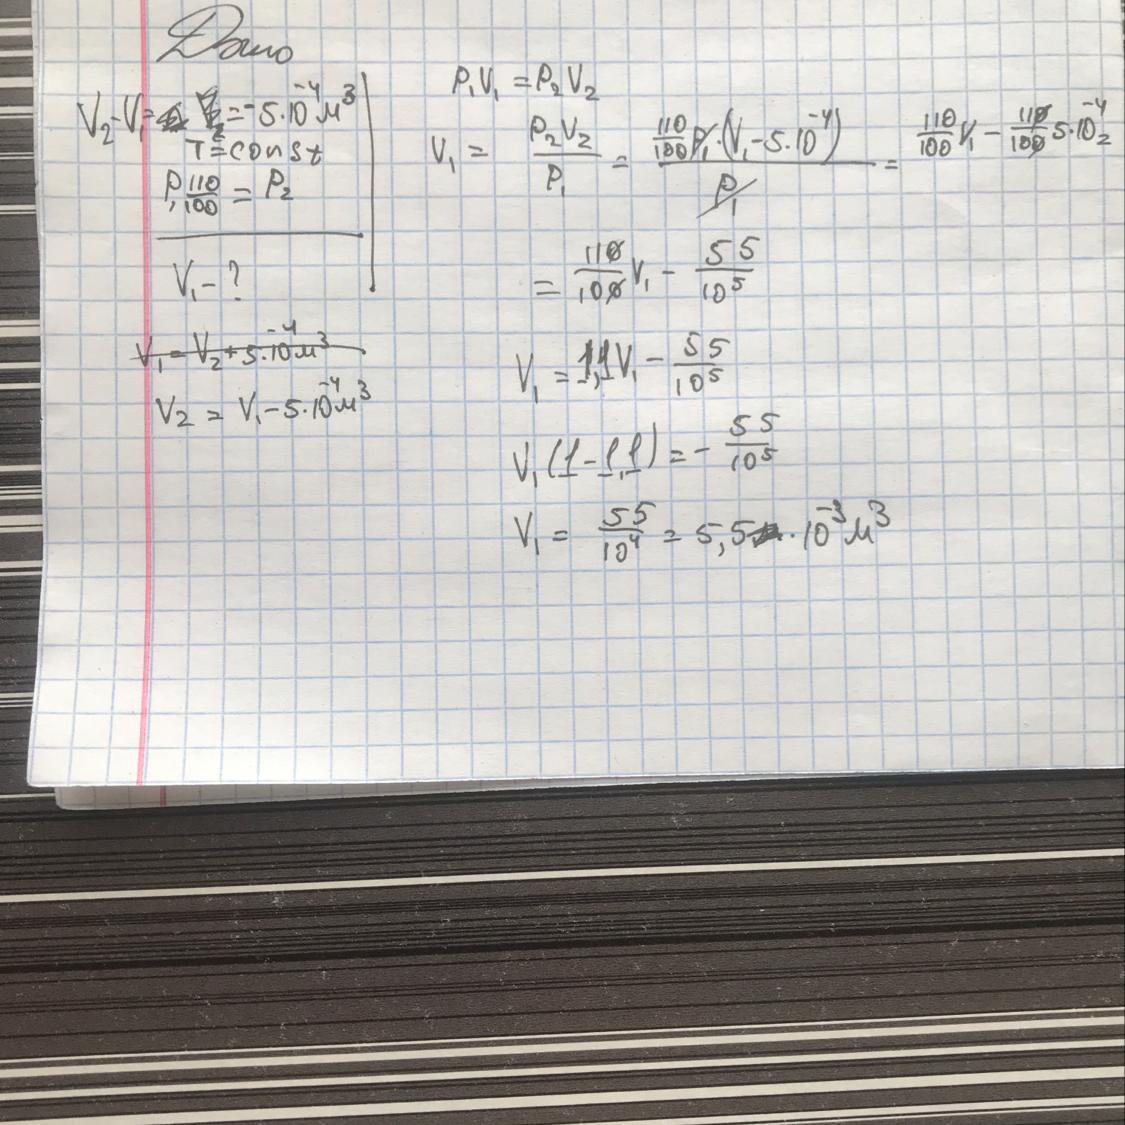 Дано
V₂-V₁= = -5·10⁻⁴м³
T=const
P₁ 110/100 = P₂
V₁ - ?
V₁ = V₂ + 5·10⁻⁴м³
V₂ = V₁ - 5·10⁻⁴м³
P₁V₁ = P₂V₂
V₁ = P₂V₂/P₁ = 110/100 P₁·(V₁-5·10⁻⁴)/P₁ = 110/100 V₁ - 110/100 5·10⁻⁴
= 110/100 V₁ - 55/10⁵
V₁ = 1,1V₁ - 55/10⁵
V₁(1-1,1) = - 55/10⁵
V₁ = 55/10⁴ = 5,5·10⁻³м³